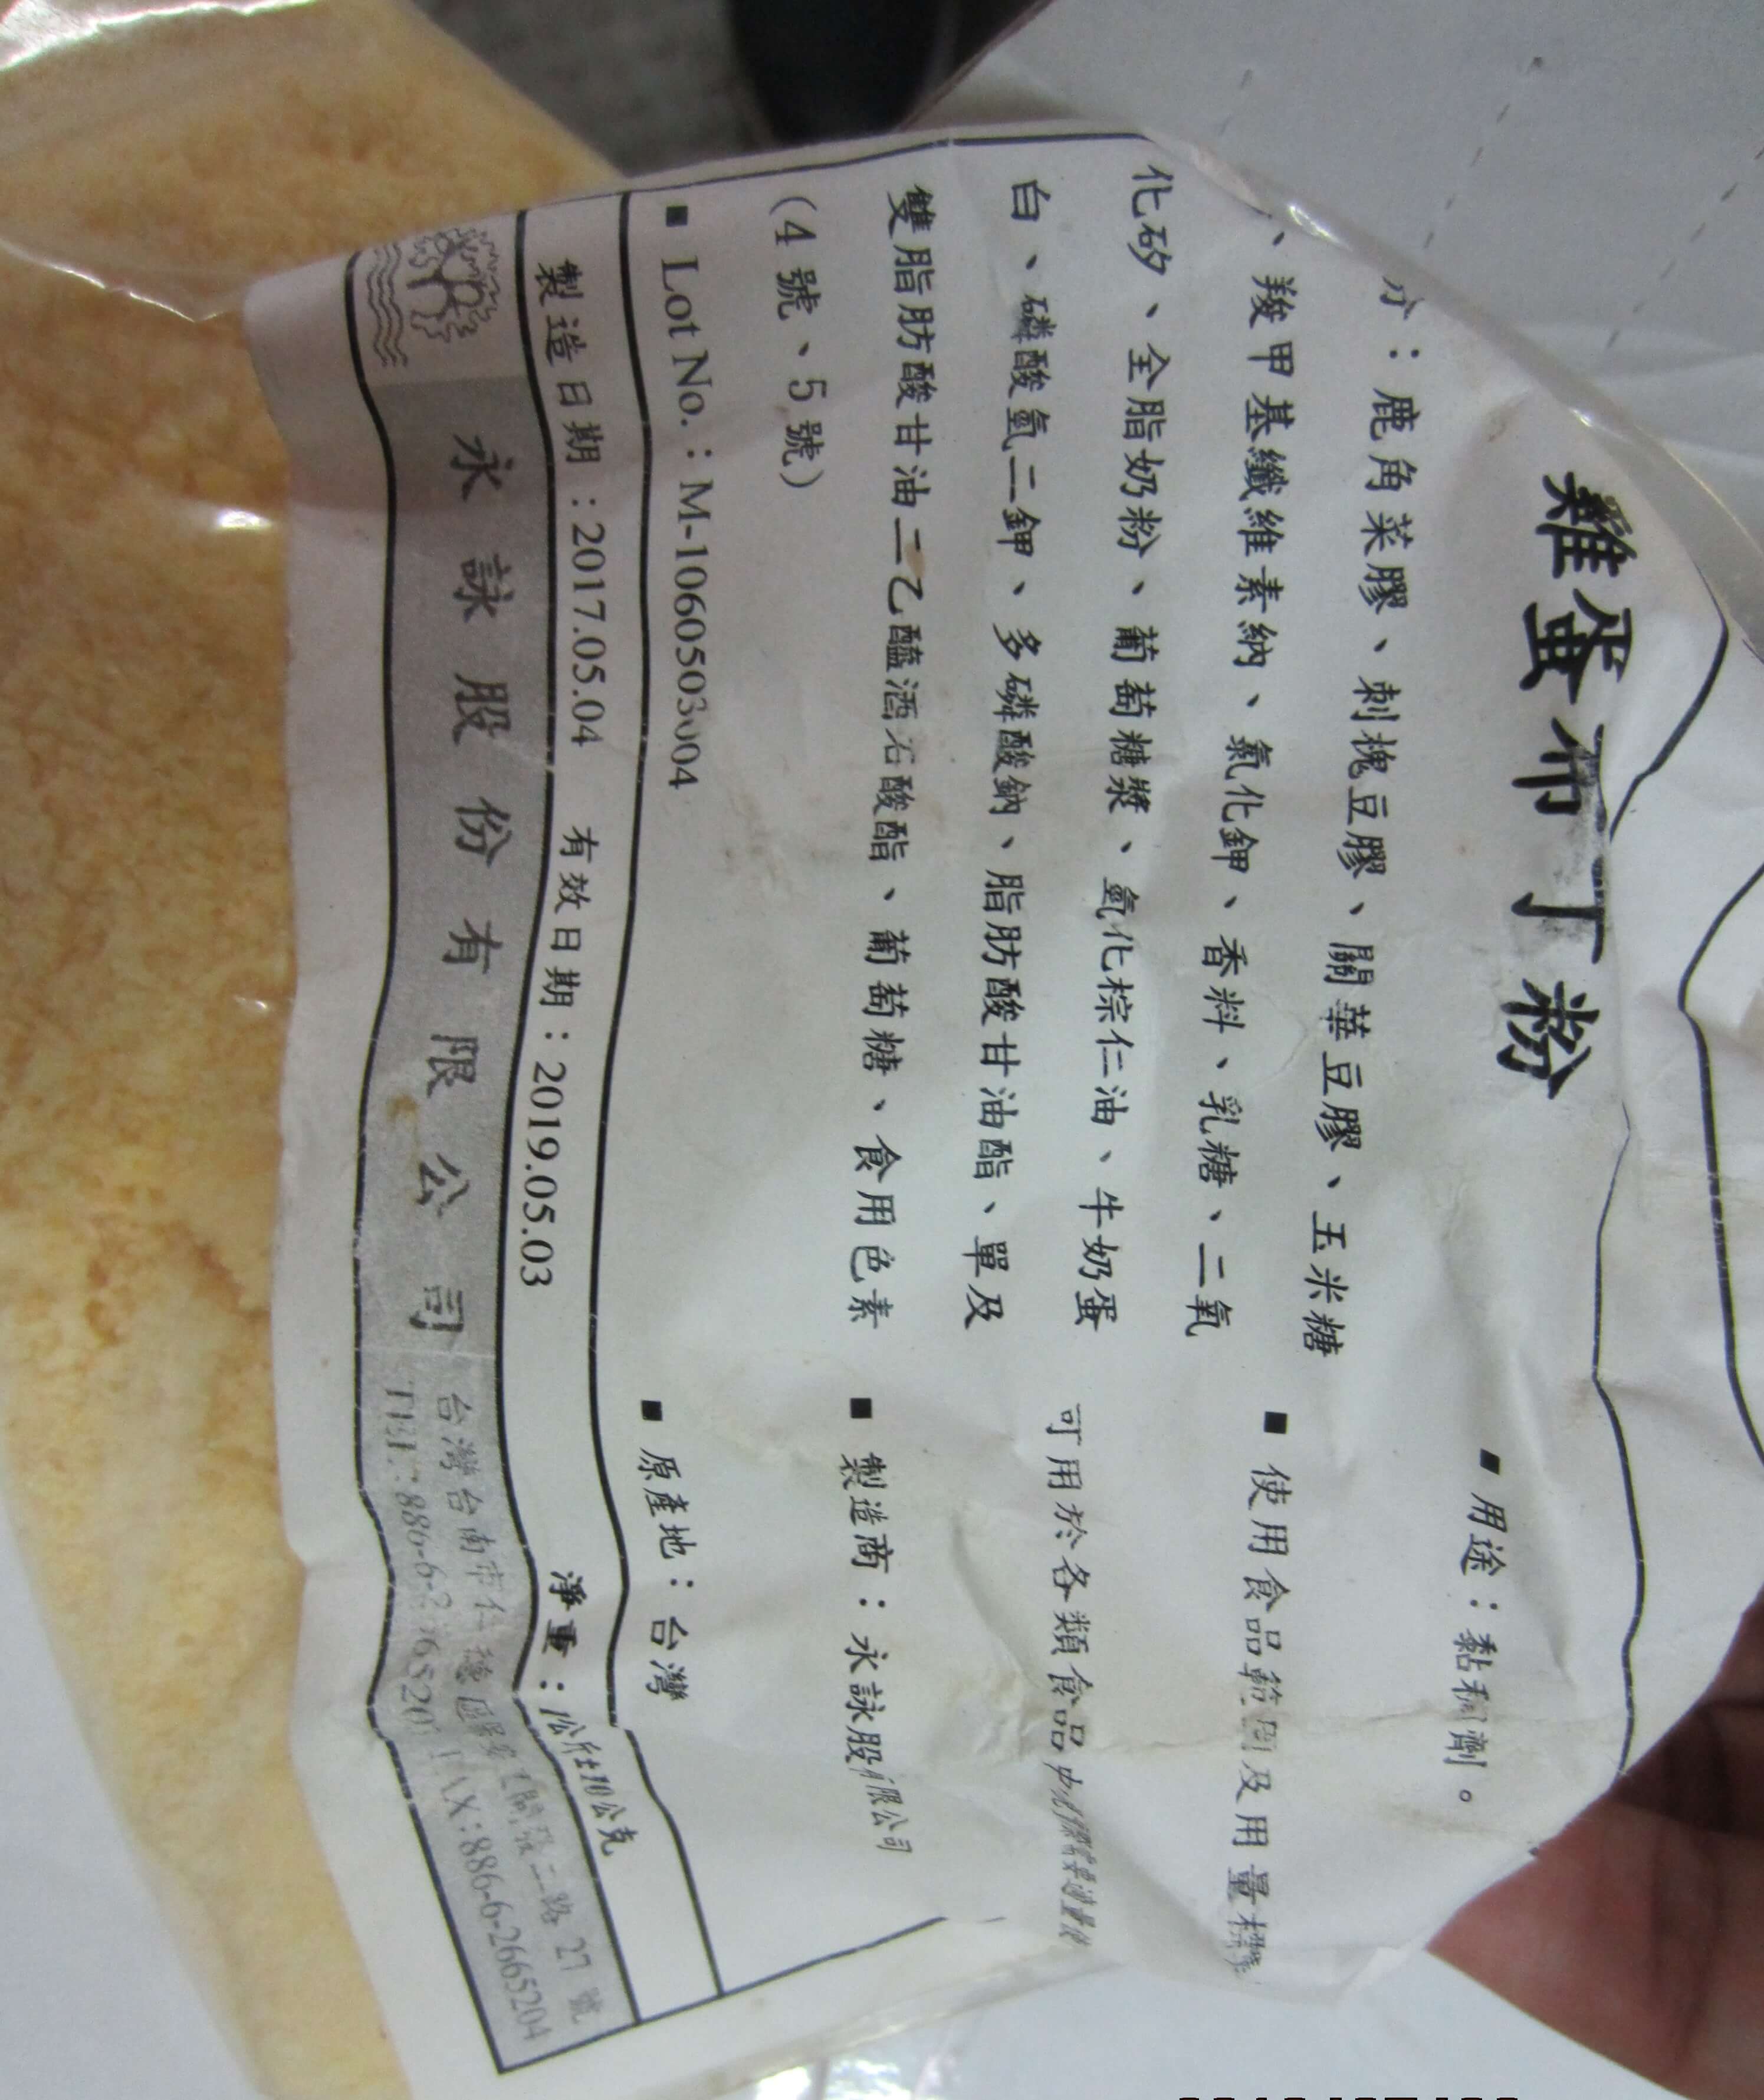 雞蛋布丁粉
分：鹿角菜膠、刺槐豆膠、關華豆膠、玉米糖
、羧甲基纖維素納、氯化鉀、香料、乳糖、二氧
化矽、全脂奶粉、葡萄糖漿、氫化棕仁油、牛奶蛋
白、磷酸氫二鉀、多磷酸鈉、脂肪酸甘油酯、單及
雙脂肪酸甘油二乙醯酒石酸酯、葡萄糖、食用色素
(4 號、5 號)
■ Lot No.：M-1060503004
■ 用途：黏稠劑。
■ 使用食品範圍及用量標
可用於各類食品
■ 製造商：永詠股有限公司
■ 原產地：台灣
製造日期：2017.05.04 有效日期：2019.05.03 淨重：1公斤±10公克
永詠股份有限公司
台灣台南市仁德區 二路 27 號
TEL:886-6- FAX:886-6-2665204